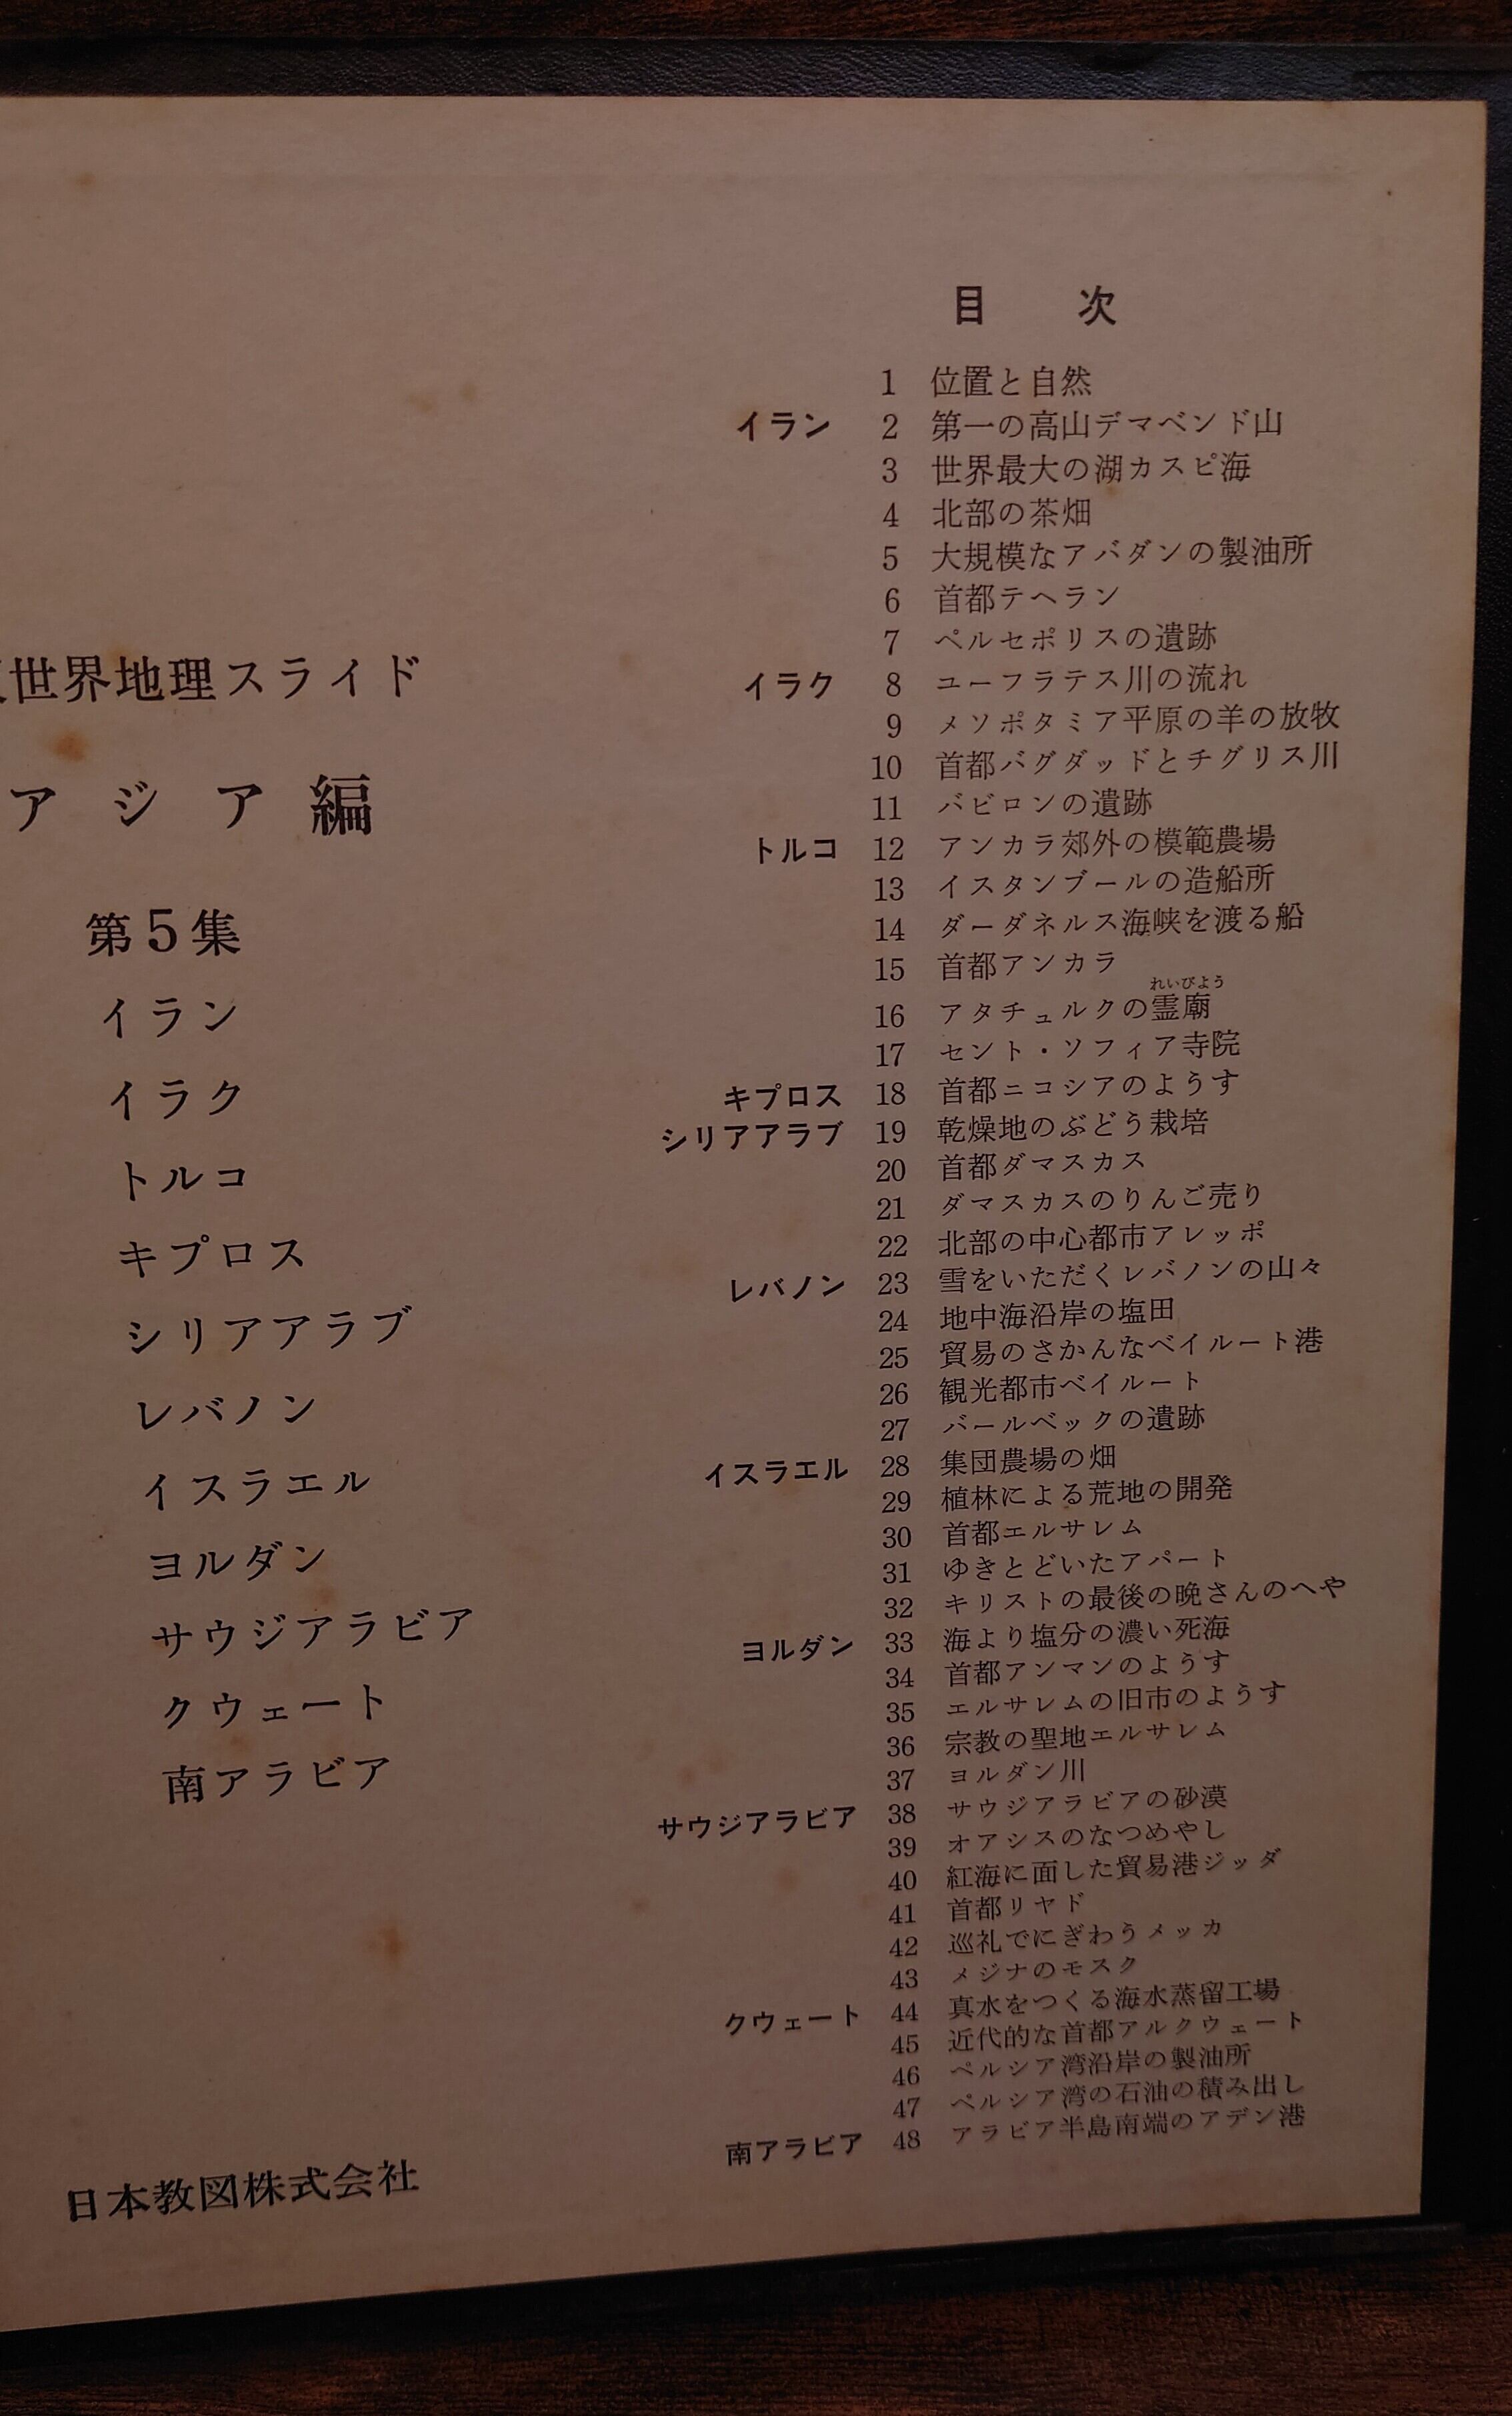 世界地理スライド
アジア編
第5集
イラン
イラク
トルコ
キプロス
シリアアラブ
レバノン
イスラエル
ヨルダン
サウジアラビア
クウェート
南アラビア
日本教図株式会社
目次
1 位置と自然
イラン 2 第一の高山デマベンド山
3 世界最大の湖カスピ海
4 北部の茶畑
5 大規模なアバダンの製油所
6 首都テヘラン
7 ペルセポリスの遺跡
イラク 8 ユーフラテス川の流れ
9 メソポタミア平原の羊の放牧
10 首都バグダッドとチグリス川
11 バビロンの遺跡
トルコ 12 アンカラ郊外の模範農場
13 イスタンブールの造船所
14 ダーダネルス海峡を渡る船
15 首都アンカラ
れいびよう
16 アタチュルクの霊廟
17 セント・ソフィア寺院
キプロス 18 首都ニコシアのようす
シリアアラブ 19 乾燥地のぶどう栽培
20 首都ダマスカス
21 ダマスカスのりんご売り
22 北部の中心都市アレッポ
レバノン 23 雪をいただくレバノンの山々
24 地中海沿岸の塩田
25 貿易のさかんなベイルート港
26 観光都市ベイルート
27 バールベックの遺跡
イスラエル 28 集団農場の畑
29 植林による荒地の開発
30 首都エルサレム
31 ゆきとどいたアパート
32 キリストの最後の晩さんのへや
ヨルダン 33 海より塩分の濃い死海
34 首都アンマンのようす
35 エルサレムの旧市のようす
36 宗教の聖地エルサレム
37 ヨルダン川
サウジアラビア 38 サウジアラビアの砂漠
39 オアシスのなつめやし
40 紅海に面した貿易港ジッダ
41 首都リヤド
42 巡礼でにぎわうメッカ
43 メジナのモスク
クウェート 44 真水をつくる海水蒸留工場
45 近代的な首都アルクウェート
46 ペルシア湾沿岸の製油所
47 ペルシア湾の石油の積み出し
南アラビア 48 アラビア半島南端のアデン港